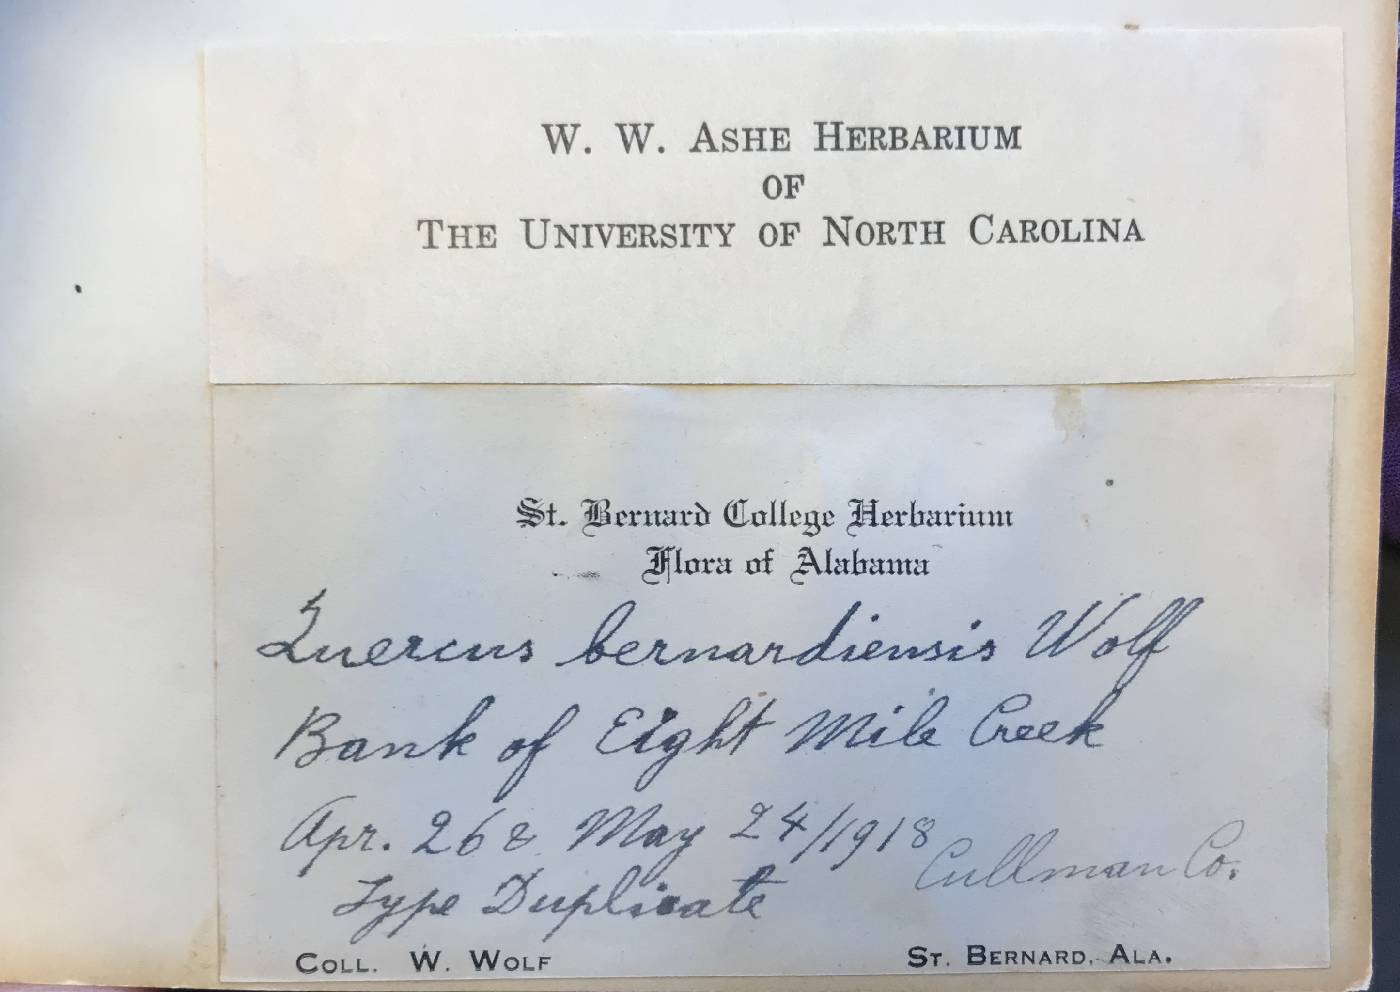 W. W. ASHE HERBARIUM
OF
THE UNIVERSITY OF NORTH CAROLINA
St. Bernard College Herbarium
Flora of Alabama
Quercus bernardiensis Wolf
Bank of Eight Mile Creek
Apr. 26 & May 24/1918
Cullman Co.
Type Duplicate
COLL. W. WOLF
ST. BERNARD, ALA.